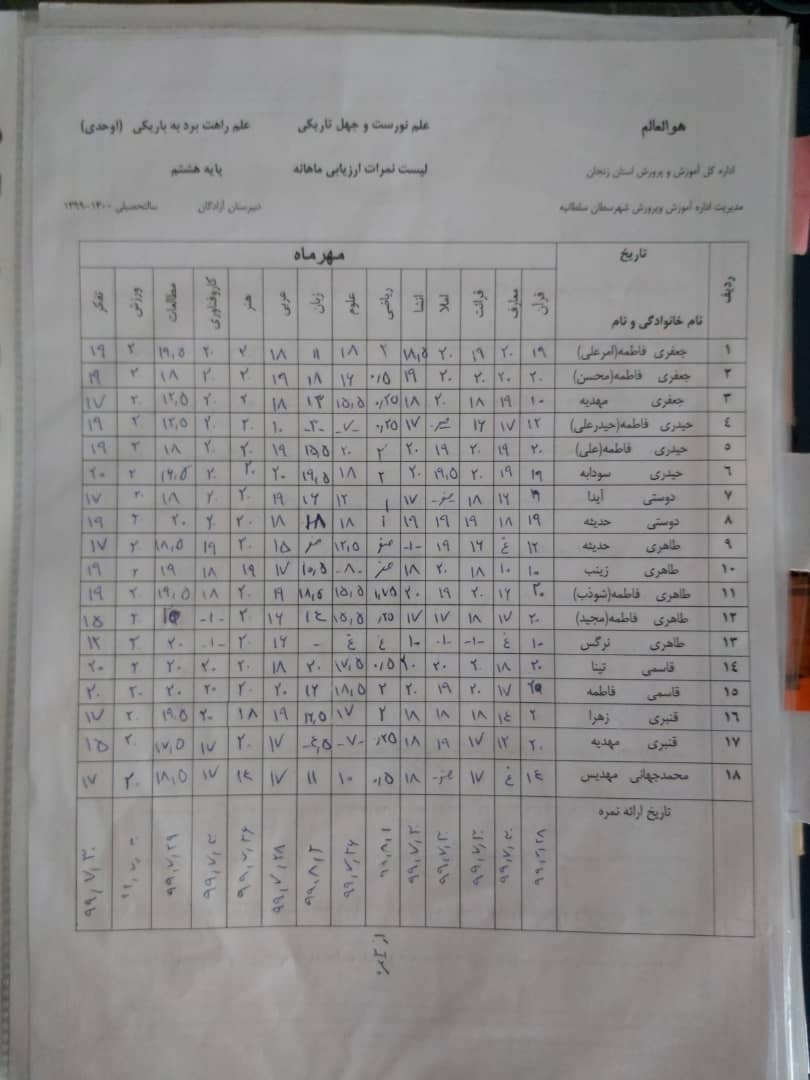 هوالعالم علم نورست و جهل تاریکی علم راهت برد به باریکی (اوحدی)
اداره کل آموزش و پرورش استان زنجان لیست نمرات ارزیابی ماهانه پایه هشتم
مدیریت اداره آموزش وپرورش شهرسطان سلطانیه دبیرستان آزادگان سالتحصیلی ۱۴۰۰-۱۳۹۹
ردیف تاریخ مهرماه
نام خانوادگی و نام قرآن معارف قرائت املا انشا ریاضی علوم زبان عربی هنر کاروفناوری مطالعات ورزش تفکر
۱ جعفری فاطمه(امرعلی) ۱۹ ۲۰ ۱۹ ۲۰ ۱۸,۵ ۲ ۱۸ ۱۱ ۱۸ ۲۰ ۲۰ ۱۹,۵ ۲۰ ۱۹
۲ جعفری فاطمه(محسن) ۲۰ ۲۰ ۲۰ ۲۰ ۱۹ ۰/۵ ۱۶ ۱۸ ۱۹ ۲۰ ۲۰ ۱۸ ۲۰ ۱۹
۳ جعفری مهدیه ۱۰ ۱۹ ۱۸ ۲۰ ۱۸ ۰/۲۵ ۱۵,۵ ۱۳ ۱۸ ۲۰ ۲۰ ۱۲,۵ ۲۰ ۱۷
۴ حیدری فاطمه(حیدرعلی) ۱۲ ۱۷ ۱۶ ۱۷ ۰/۲۵ -۷- -۳- ۱۰ ۲۰ ۲۰ ۱۲,۵ ۲۰ ۱۹
۵ حیدری فاطمه(علی) ۲۰ ۱۹ ۲۰ ۱۹ ۲۰ ۲ ۲۰ ۱۵,۵ ۱۹ ۲۰ ۲۰ ۱۸ ۲۰ ۱۹
۶ حیدری سودابه ۱۹ ۱۹ ۲۰ ۱۹,۵ ۲۰ ۲ ۱۸ ۱۹,۵ ۲۰ ۲۰ ۲۰ ۱۶,۵ ۲۰ ۲۰
۷ دوستی آیدا ۱۶ ۱۸ ۱۷ ۱ ۱۲ ۱۶ ۱۹ ۲۰ ۲۰ ۱۸ ۲۰ ۱۷
۸ دوستی حدیثه ۱۹ ۱۸ ۱۹ ۱۹ ۱۹ ۱ ۱۸ ۱۸ ۱۸ ۲۰ ۲۰ ۲۰ ۲۰ ۱۹
۹ طاهری حدیثه ۱۲ غ ۱۶ ۱۹ -۱۰- صفر ۱۲,۵ ۱۵ ۲۰ ۱۹ ۱۸,۵ ۲۰ ۱۷
۱۰ طاهری زینب ۱۰ ۱۰ ۱۸ ۲۰ ۱۸ صفر -۸- ۱۰,۵ ۱۷ ۱۹ ۱۸ ۱۹ ۲۰ ۱۹
۱۱ طاهری فاطمه(شوذب) ۲۰ ۱۶ ۲۰ ۱۹ ۲۰ ۱,۷۵ ۱۵,۵ ۱۸,۵ ۱۹ ۲۰ ۱۸ ۱۹,۵ ۲۰ ۱۹
۱۲ طاهری فاطمه(مجید) ۲۰ ۱۷ ۱۸ ۱۷ ۱۷ ۰/۲۵ ۱۵,۵ ۱۴ ۱۶ ۲۰ -۱۰- ۱۵ ۲۰ ۱۵
۱۳ طاهری نرگس ۱۰ غ -۱۰- ۱۰ ۱۰ غ غ - ۱۶ ۲۰ -۱۰- ۲۰ ۲۰ ۱۲
۱۴ قاسمی تینا ۲۰ ۱۸ ۲۰ ۲۰ ۲۰ ۰/۵ ۱۷,۵ ۲۰ ۱۸ ۲۰ ۲۰ ۲۰ ۲۰ ۲۰
۱۵ قاسمی فاطمه ۱۷ ۲۰ ۱۹ ۲۰ ۲ ۱۸,۵ ۱۲ ۲۰ ۲۰ ۲۰ ۲۰ ۲۰ ۲۰
۱۶ قنبری زهرا ۲۰ ۱۴ ۱۸ ۱۸ ۱۸ ۲ ۱۷ ۱۲,۵ ۱۹ ۱۸ ۲۰ ۱۹,۵ ۲۰ ۱۷
۱۷ قنبری مهدیه ۲۰ ۱۲ ۱۷ ۱۹ ۱۸ ۰/۲۵ -۷- -۴,۵ ۱۷ ۲۰ ۱۷ ۱۷,۵ ۲۰ ۱۵
۱۸ محمدجهانی مهدیس ۱۴ غ ۱۷ صفر ۱۸ ۰/۵ ۱۰ ۱۱ ۱۷ ۱۴ ۱۷ ۱۸,۵ ۲۰ ۱۷
تاریخ ارائه نمره ۹۹,۷,۲۸ ۹۹,۷,۳۰ ۹۹,۷,۳۰ ۹۹,۷,۳۰ ۹۹,۷,۳۰ ۹۹,۸,۱ ۹۹,۷,۲۶ ۹۹,۸,۲ ۹۹,۷,۲۸ ۹۹,۷,۲۶ ۹۹,۷,۳۰ ۹۹,۷,۲۹ ۹۹,۷,۳۰ ۹۹,۷,۳۰
از ۲ نمره